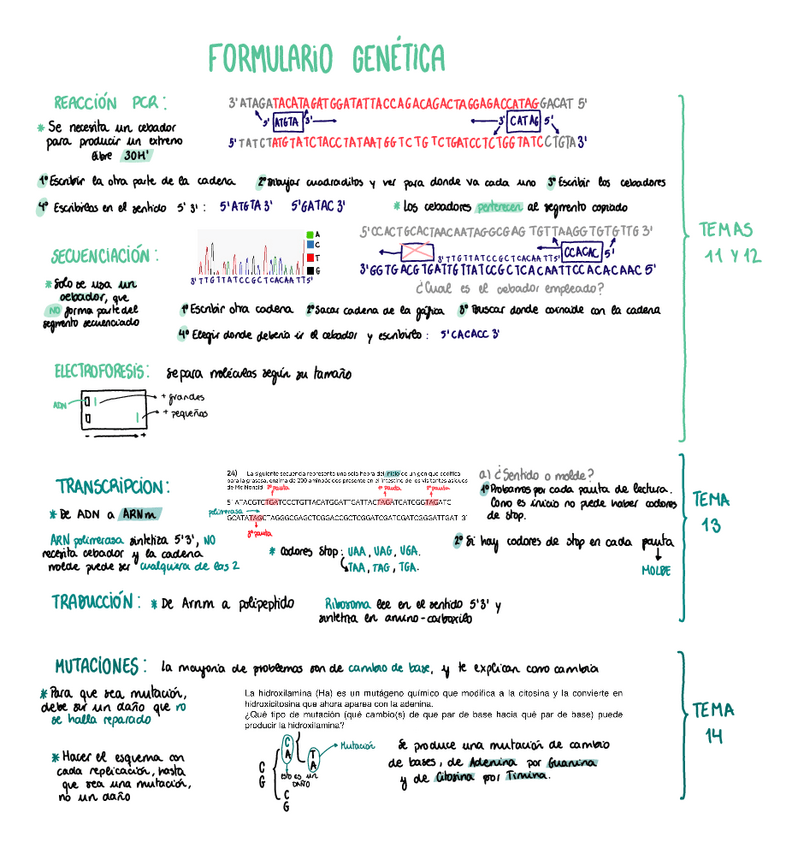 FORMULARIO GENÉTICA
REACCIÓN PCR:
* Se necesita un cebador
para producir un extremo
libre 3OH'
3' ATAGATACATAGATGGATATTACCAGACAGACTAGGAGACCATAGGACAT 5'
5' ATGTA 3'
3' CATAG 5'
5' TATCTATGTATCTACCTATAATGGTCTGTCTGATCCTCTGGTATCCTGTA 3'
1º Escribir la otra parte de la cadena 2º Dibujar cuadraditos y ver para donde va cada uno 3º Escribir los cebadores
4º Escribirlos en el sentido 5' 3': 5'ATGTA 3' 5'GATAC 3'
* Los cebadores pertenecen al segmento copiado
TEMAS
11 Y 12
SECUENCIACIÓN:
* Solo se usa un
cebador, que
NO forma parte del
segmento secuenciado
A
C
T
G
3'TTGTTATCCGCTCACAATT5'
5'CCACTGCACTAACAATAGGCGAG TGTTAAGGTGTGTTG 3'
3'TTGTTATCCGCTCACAATT5'
CCACAC 5'
3'GGTGACGTGATTGTTATCCGCTCACAATTCCACACAAC 5'
¿Cual es el cebador empleado?
1º Escribir otra cadena 2º Sacar cadena de la gáfica 3º Buscar donde coincide con la cadena
4º Elegir donde debería ir el cebador y escribirlo: 5'CACACC 3'
ELECTROFORESIS: Separa moléculas según su tamaño
ADN
+ grandes
+ pequeños
- +
TRANSCRIPCION:
* De ADN a ARNm
ARN polimerasa sintetiza 5'3', NO
necesita cebador y la cadena
molde puede ser cualquiera de las 2
24) La siguiente secuencia representa una sola hebra del inicio de un gen que codifica
para la grasosa, enzima de 200 aminoácidos presente en el intestino de los visitantes asiduos
de Mc Noncid
2ª pauta
1ª pauta
5' ATACGTCTGATCCCTGTTACATGGATTGATTACTAGATCATCGGTAGATC
polimerasa
GCATATAGCTAGGGCGAGCTCGGACCGCTCGGATCGATCGATCGGGATTGAT 3'
3ª pauta
* Codores Stop: UAA, UAG, UGA.
TAA, TAG, TGA.
a) ¿Sentido o molde?
1º Probamos por cada pauta de lectura.
Como es inicio no puede haber codores
de stop.
2º Si hay codores de stop en cada pauta
MOLDE
TEMA
13
TRADUCCIÓN: * De Arnm a polipeptido
Ribosoma lee en el sentido 5'3' y
sintetiza en amino-carboxilo
MUTACIONES: la mayoria de problemas son de cambio de base, y te explican como cambia
* Para que sea mutación,
debe ser un daño que no
se halla reparado
* Hacer el esquema con
cada replicación, hasta
que sea una mutación,
no un daño
La hidroxilamina (Ha) es un mutágeno químico que modifica a la citosina y la convierte en
hidroxicitosina que ahora aparea con la adenina.
¿Qué tipo de mutación (qué cambio(s) de que par de base hacia qué par de base) puede
producir la hidroxilamina?
C
G
C
A
esto es un
DAÑO
T
A
Mutación
C
G
Se produce una mutación de cambio
de bases, de Adenina por Guanina
y de Citosina por Timina.
TEMA
14